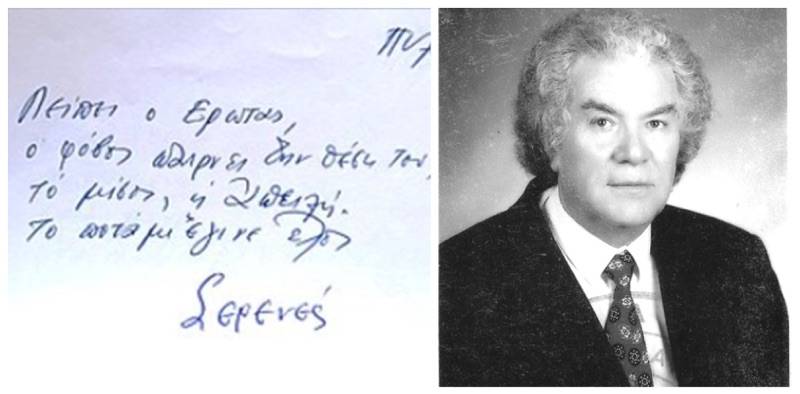 Πυ
Λείπει ο Έρωτας,
ο φόβος παίρνει την θέση του,
το μίσος, η απειλή.
Το ποτάμι έγινε έλος
Σερενές